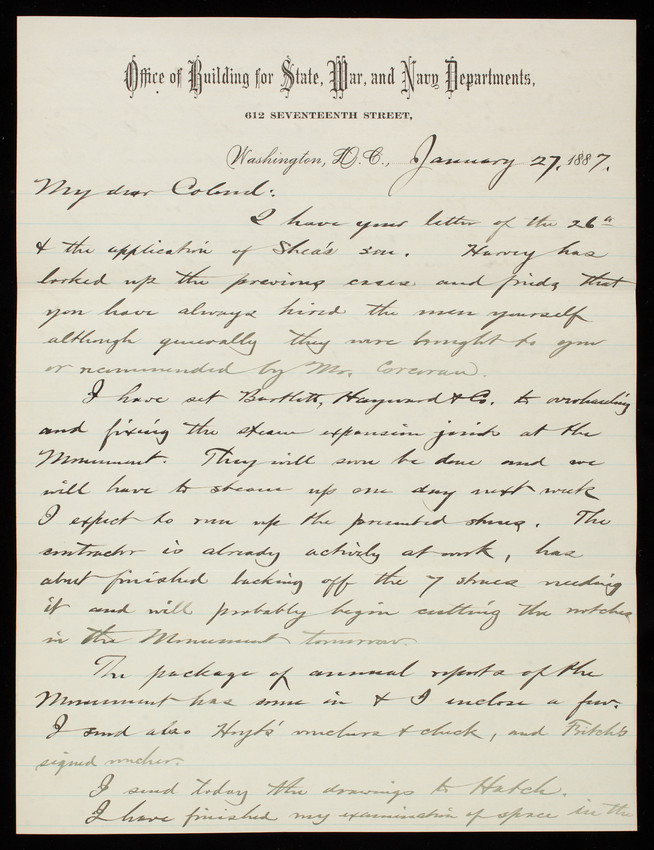 Office of Building for State, War, and Navy Departments,
612 SEVENTEENTH STREET,
Washington, D.C., January 27, 1887.
My dear Colonel:
I have your letter of the 26th
& the application of Shea's son. Harvey has
looked up the previous cases and finds that
you have always hired the men yourself
although generally they were brought to you
or recommended by Mr. Corcoran.
I have set Bartlett, Hayward & Co. to overhauling
and fixing the steam expansion joints at the
Monument. They will soon be done and we
will have to steam up one day next week
I expect to run up the presented stones. The
contractor is already actively at work, has
about finished backing off the 7 stones needing
it and will probably begin cutting the notches
in the Monument tomorrow.
The package of annual reports of the
Monument has come in & I enclose a few.
I send also Hoyt's vouchers & check, and Fritch's
signed voucher.
I send today the drawings to Hatch.
I have finished my examination of space in the